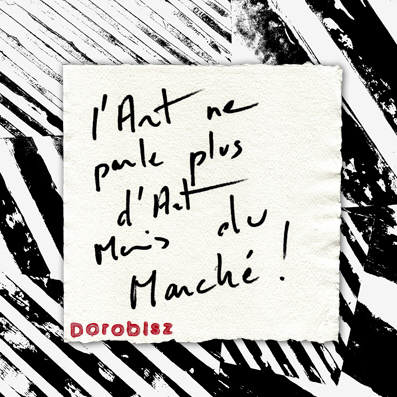 l'Art ne
parle plus
d'Art
Mais du
Marché !
Dorobisz